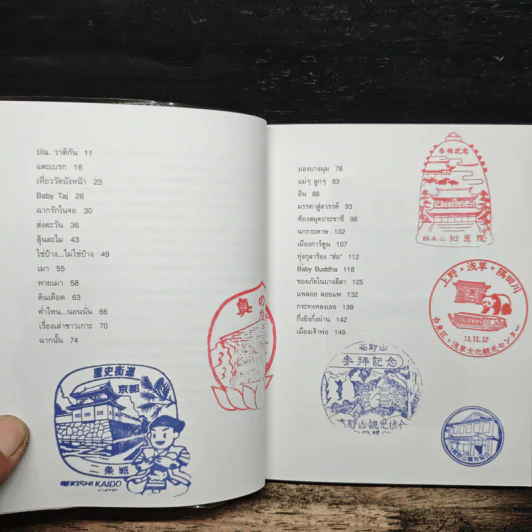 ปณ. วาติกัน 11
แตะเบรก 16
เที่ยววัดบังหน้า 23
Baby Taj 26
ฉากรักในจอ 30
ส่งตะวัน 36
ลุ้นละไม 43
ใช่บ้าง...ไม่ใช่บ้าง 49
เมา 55
พายเมา 58
ดื่นเดือด 63
ค่ำไหน...นอนนั่น 66
เรื่องเล่าชาวเกาะ 70
ฉากนั้น 74
歴史街道
京都
二条城
REKISHI KAIDO
奥の
มองบางมุม 78
แม่ๆ ลูกๆ 83
อิน 88
มรรคาสู่สวรรค์ 93
ห้องสมุดประชาชี 96
นกกระดาษ 102
เมืองการ์ตูน 107
ทุ่งกุลาร้อง "ฮ่อ" 112
Baby Buddha 118
ขออภัยในบางลีลา 125
แพลอย ลอยแพ 132
กระทงหลงเธอ 138
กึ่งยิงกึ่งผ่าน 142
เมืองเจ้าพ่อ 149
参拝記念
知恩院
上野・浅草・隅田川
13.11.17
台東区・浅草文化観光センター
高野山
参拝記念
高野山観光協会